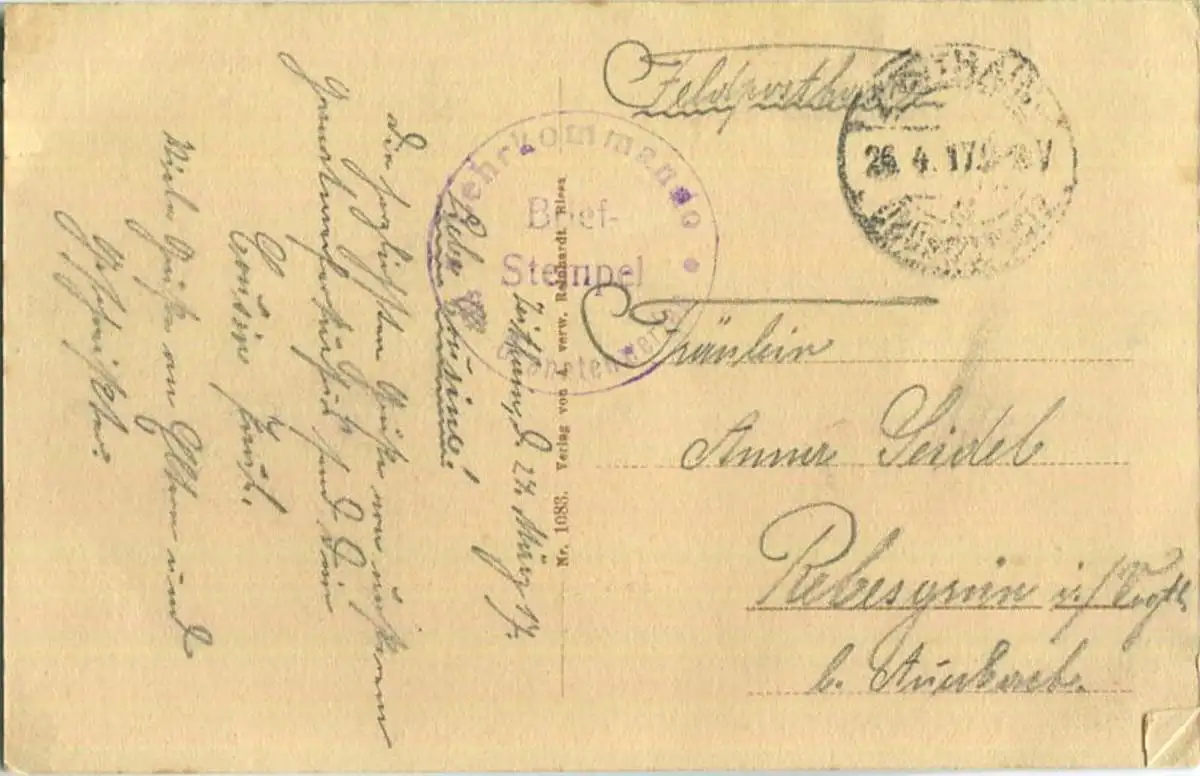 Feldpostkarte
26. 4. 17.
V
Fräulein
Anna Seidel
Rebesgrün i./Vogtl.
b. Auerbach.
kommando
Brief-
Stempel
Nr. 1083. Verlag von A. verw. Reinhardt, Riesa
Zeithain, d. 24. März 17.
Liebe Cousine!
Die herzlichsten Grüße von unserem
sendet Dir Dein
Cousin
Viele Grüße an Eltern und
Geschwister.